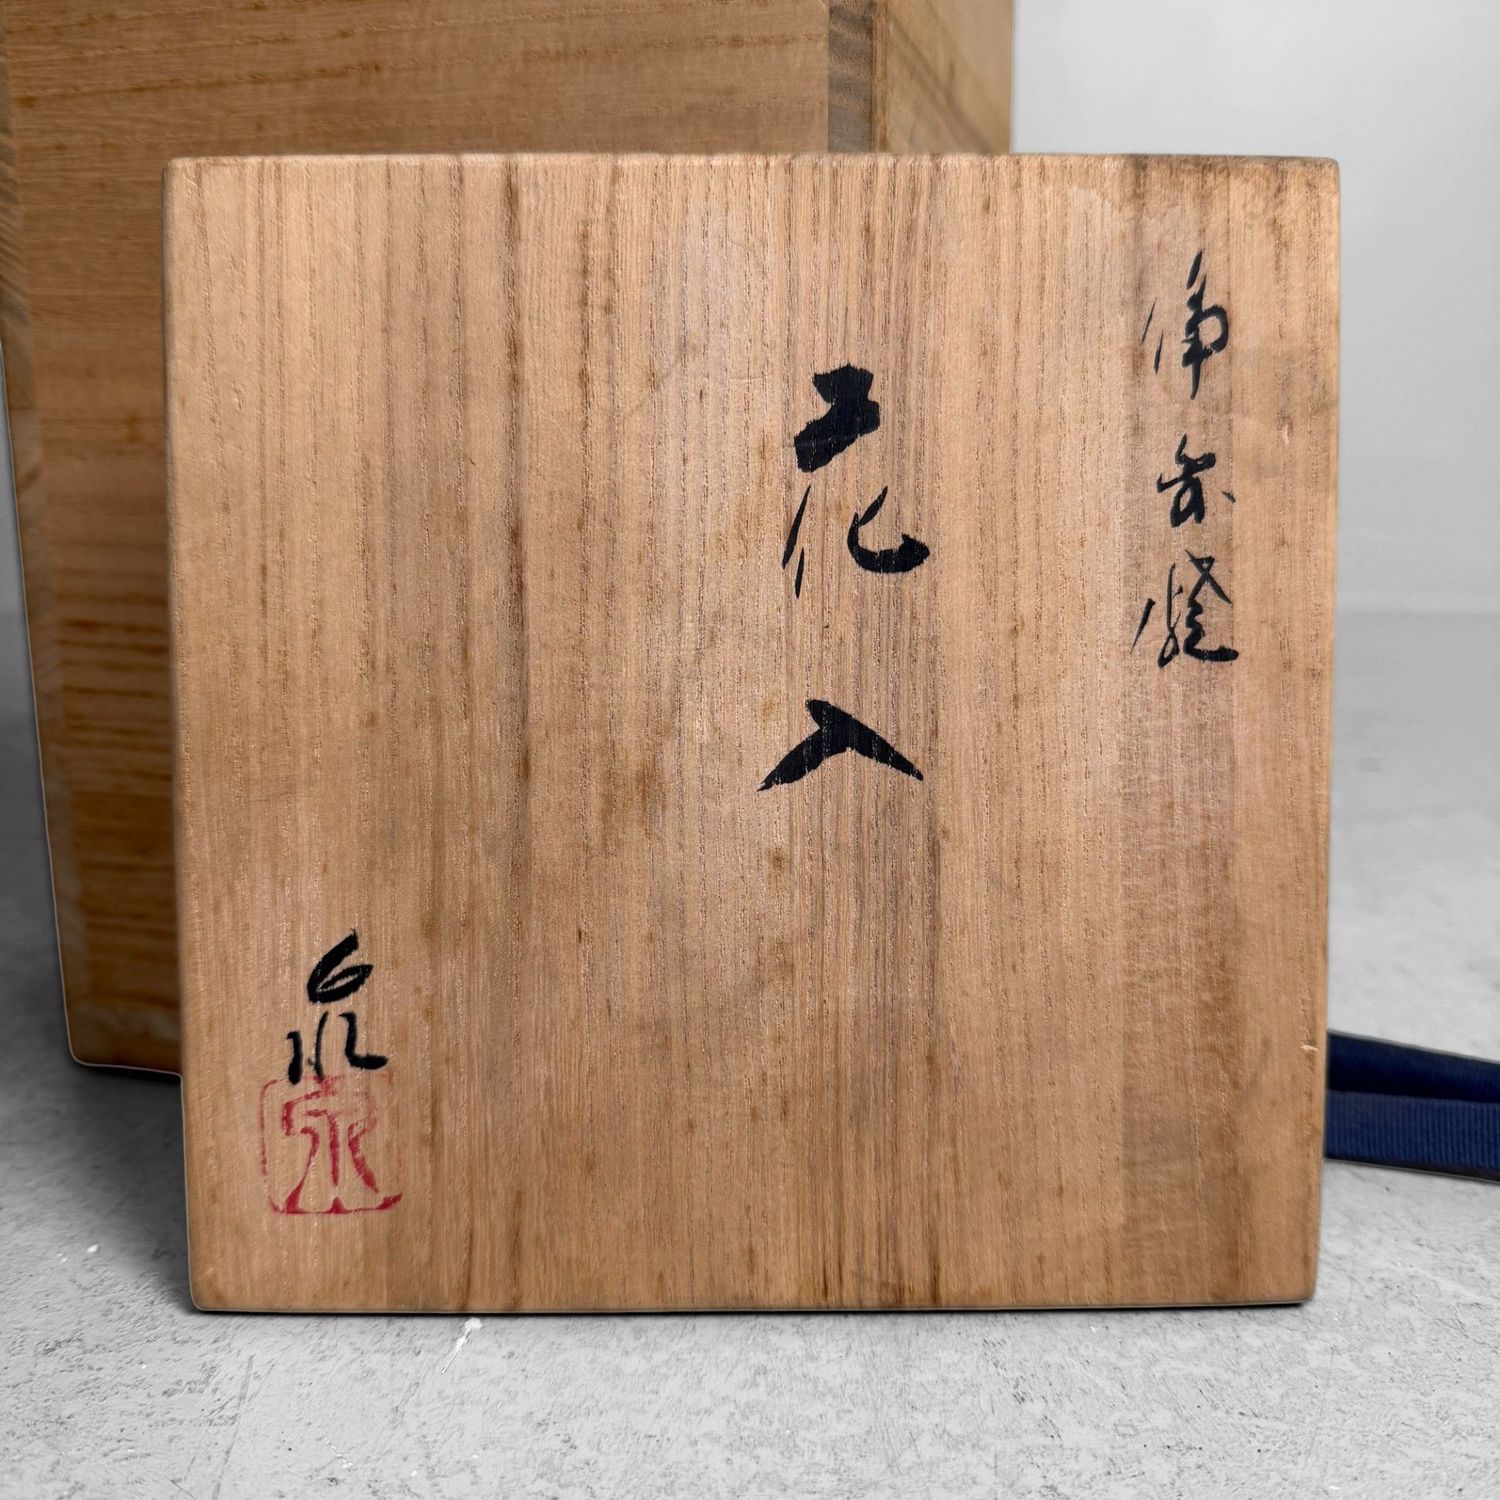 備前焼
花入
泉
泉